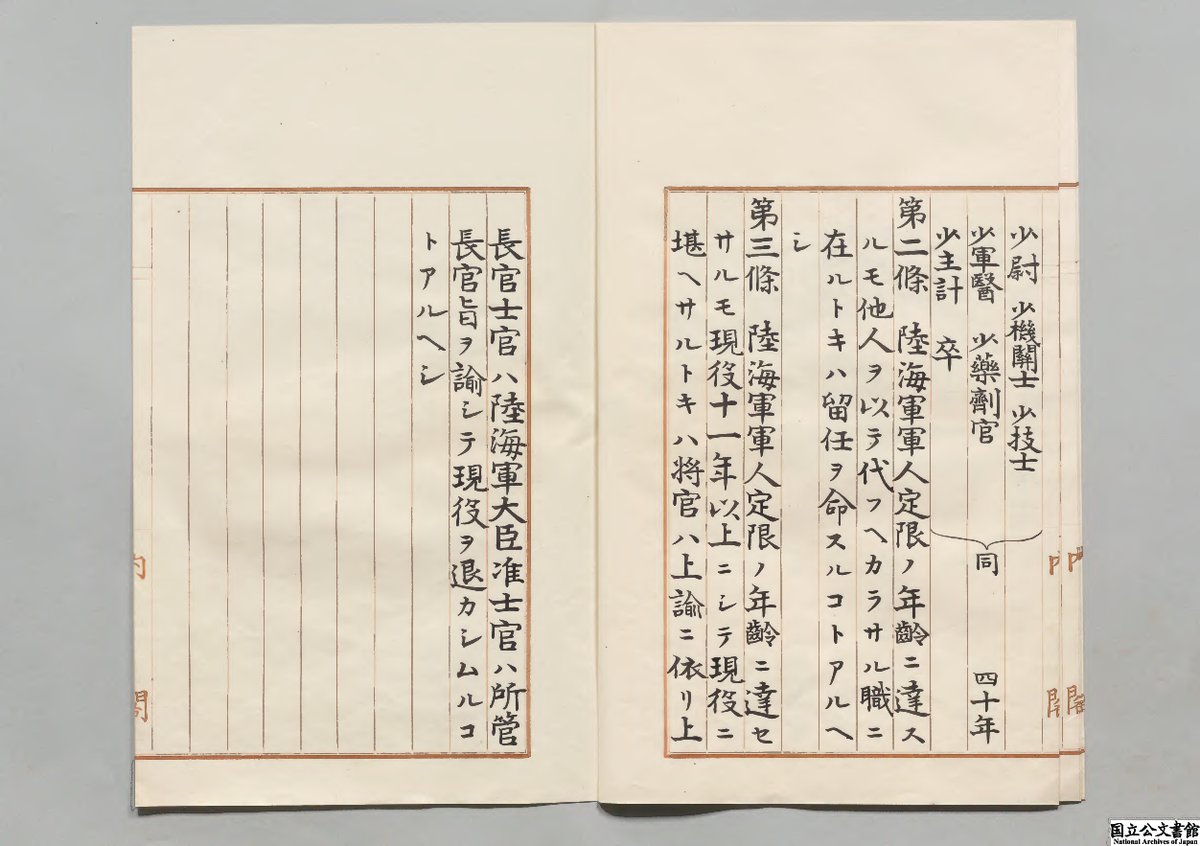 少尉 少機關士 少技士
少軍醫 少藥劑官
少主計 卒
同 四十年
第二條 陸海軍軍人定限ノ年齡ニ達ス
ルモ他人ヲ以テ代フヘカラサル職ニ
在ルトキハ留任ヲ命スルコトアルヘ
シ
第三條 陸海軍軍人定限ノ年齡ニ達セ
サルモ現役十一年以上ニシテ現役ニ
堪ヘサルトキハ將官ハ上諭ニ依リ上
長官士官ハ陸海軍大臣准士官ハ所管
長官旨ヲ諭シテ現役ヲ退カシムルコ
トアルヘシ
内閣
国立公文書館
National Archives of Japan